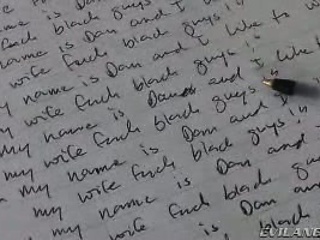 fuck black guys!!
name is Dan and I like to w
wife fuck black guys!!
my name is Dan and I like t
my wife fuck black guys!!
my name is Dan and I
my wife fuck black guys!!
my name is Dan and
my wife fuck black guy
my name is Dan and
EVILANE